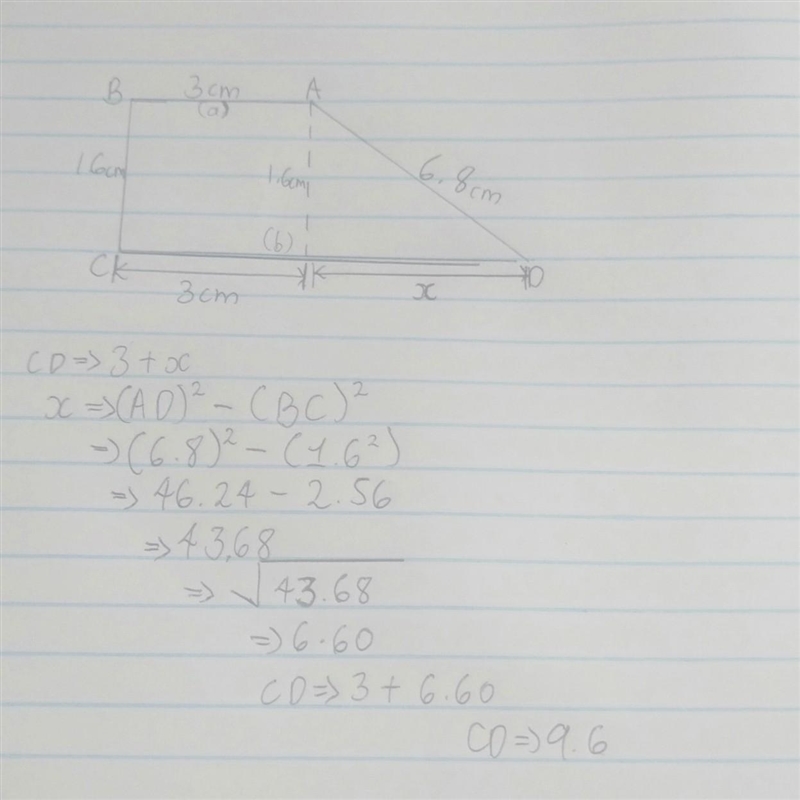 B 3cm A
(a)
1.6cm 1.6cm 6.8cm
(b)
C D
3cm x
CD⇒3+x
x⇒(AD)² - (BC)²
⇒(6.8)² - (1.6²)
⇒ 46.24 - 2.56
⇒ 43.68
⇒ √43.68
⇒ 6.60
CD⇒3 + 6.60
CD⇒9.6